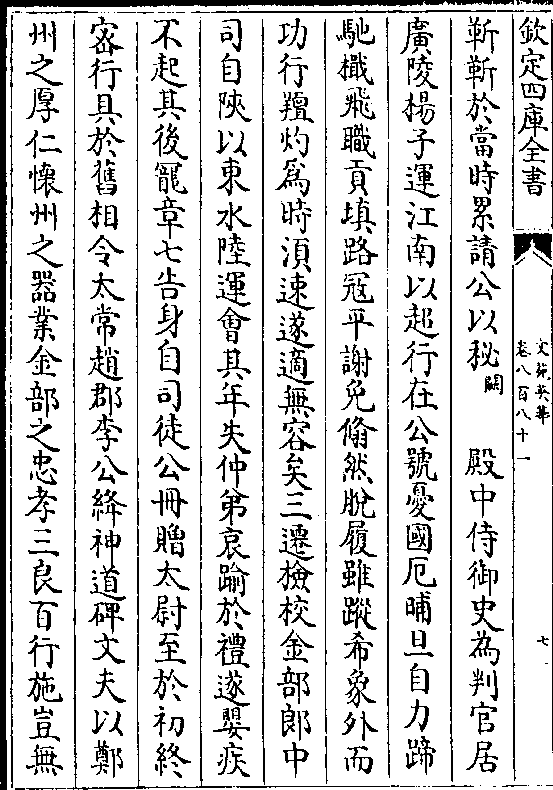 欽定四庫全書
文苑英華
卷八百八十一
七
靳靳於當時累請公以秘闕殿中侍御史為判官居
廣陵楊子運江南以趍行在公號憂國厄晡旦自力蹄
馳檝飛職貢填路冦平謝免翛然脫履雖蹤希象外而
功行羶灼為時湏速遂適無容矣三遷檢校金部郎中
司自陜以東水陸運會其年失仲弟哀踰於禮遂嬰疾
不起其後寵章七告身自司徒公冊贈太尉至於初終
宻行具於舊相令太常趙郡李公絳神道碑文夫以鄭
州之厚仁懷州之器業金部之忠孝三良百行施豈無